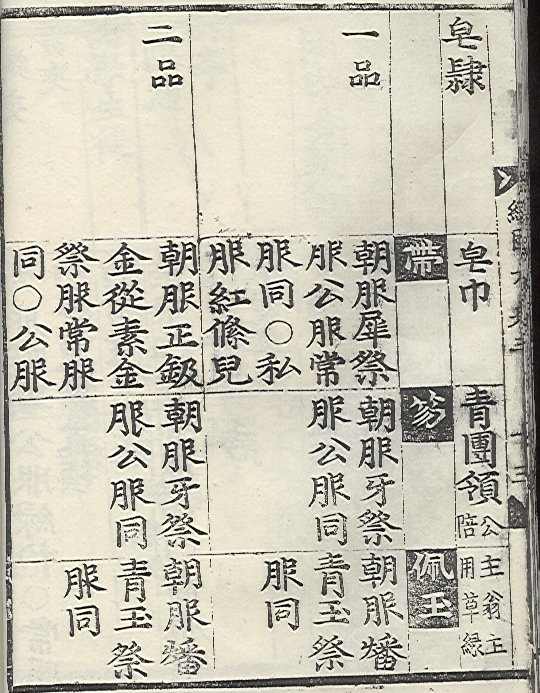 皂隷
皂巾
青團領
公
陪
主翁主
用草緑
帶
笏
佩玉
一品
朝服犀祭
服公服常
服同○私
服紅絛兒
朝服牙祭
服公服同
朝服燔
青玉祭
服同
二品
朝服正鈒
金從素金
祭服常服
同○公服
朝服牙祭
服公服同
朝服燔
青玉祭
服同